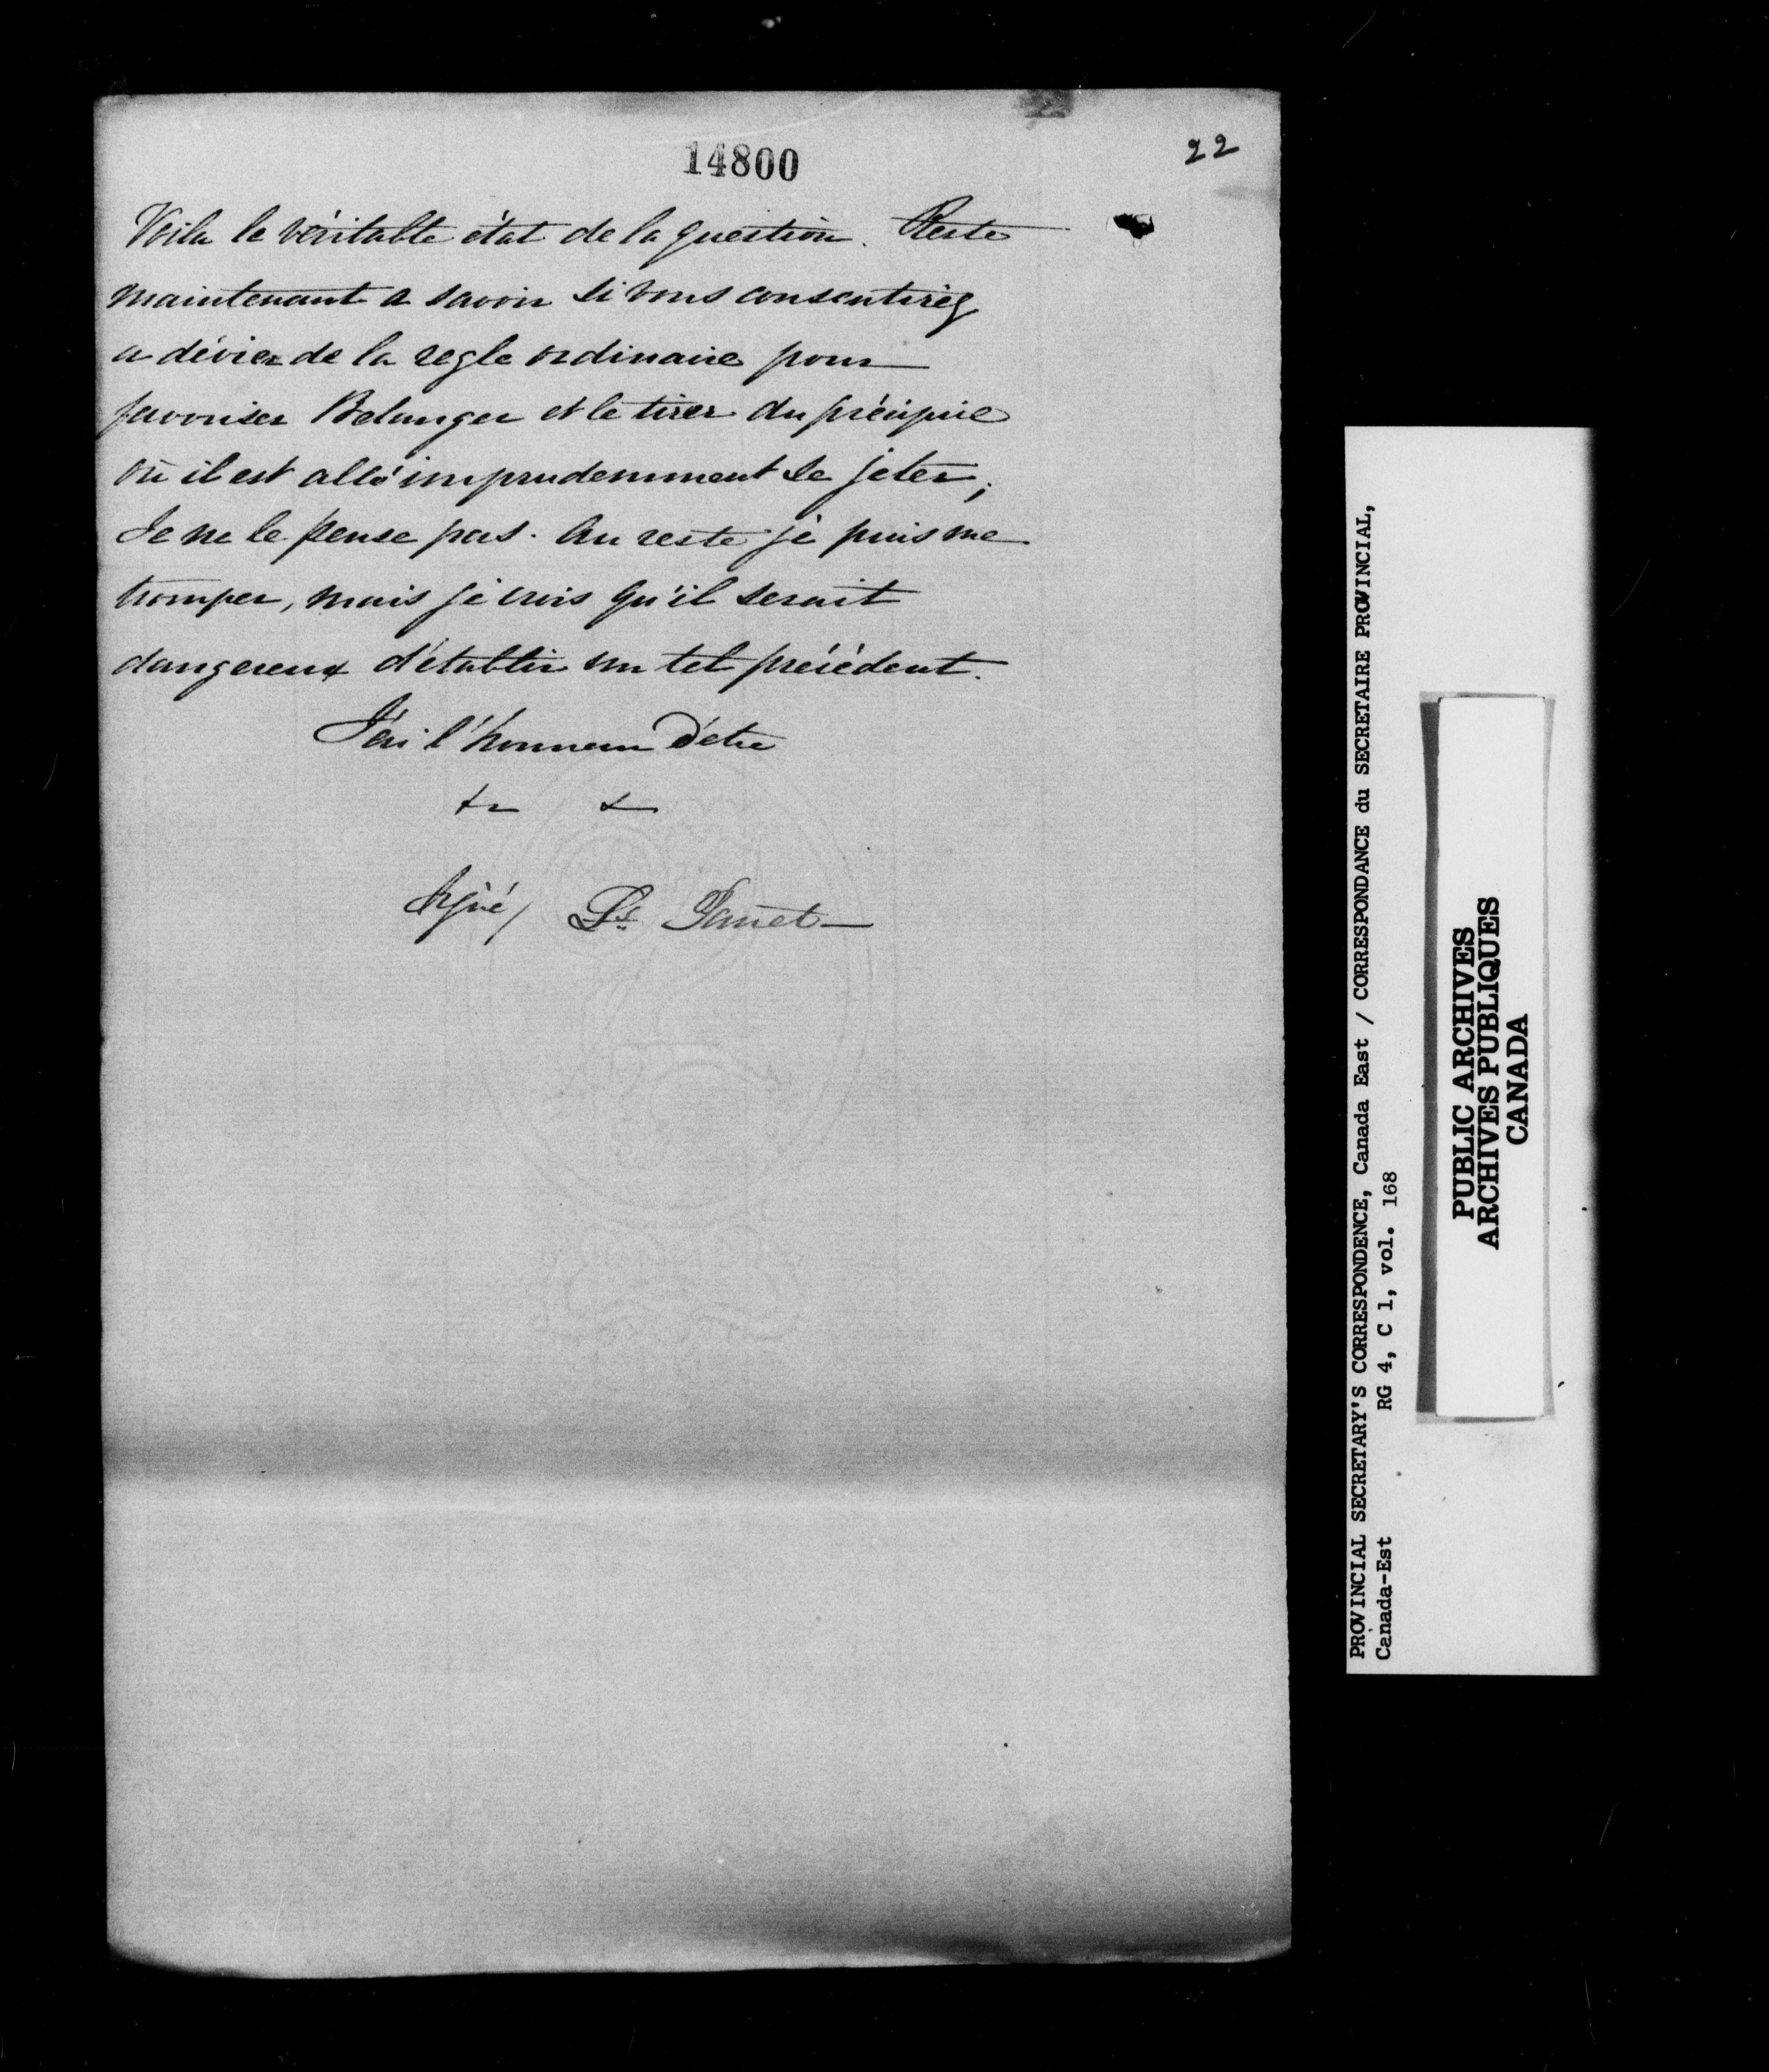 14800
22
Voila le véritable état de la question. Reste
maintenant a savoir si vous consentirez
a dévier de la regle ordinaire pour
favoriser Belanger et le tirer du précipice
où il est allé imprudemment se jeter;
Je ne le pense pas. Au reste je puis me
tromper, mais je crois qu'il serait
dangereux d'établir un tel précédent.
J'ai l'honneur d'etre
Signé / Ls. Panet
PROVINCIAL SECRETARY'S CORRESPONDENCE, Canada East / CORRESPONDANCE du SECRETAIRE PROVINCIAL,
Canada-Est RG 4, C 1, vol. 168
PUBLIC ARCHIVES
ARCHIVES PUBLIQUES
CANADA